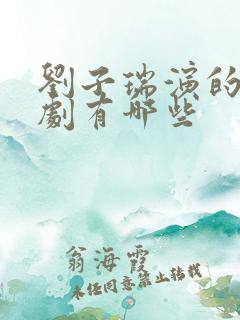 劉子瑞演的
劇有哪些
翁海霞
未经同意禁止转载